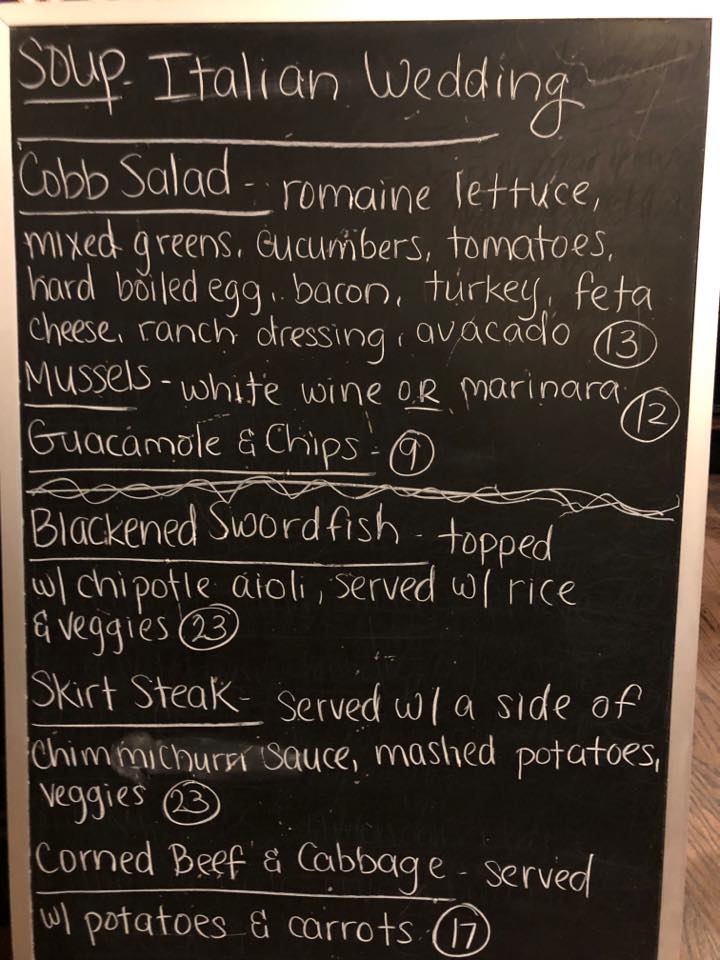 Soup - Italian Wedding
Cobb Salad - romaine lettuce,
mixed greens, cucumbers, tomatoes,
hard boiled egg, bacon, turkey, feta
cheese, ranch dressing, avacado 13
Mussels - white wine OR marinara 12
Guacamole & Chips - 9
Blackened Swordfish - topped
w/ chipotle aioli, served w/ rice
& veggies 23
Skirt Steak - served w/ a side of
chimmichurri sauce, mashed potatoes,
veggies 23
Corned Beef & Cabbage - served
w/ potatoes & carrots 17